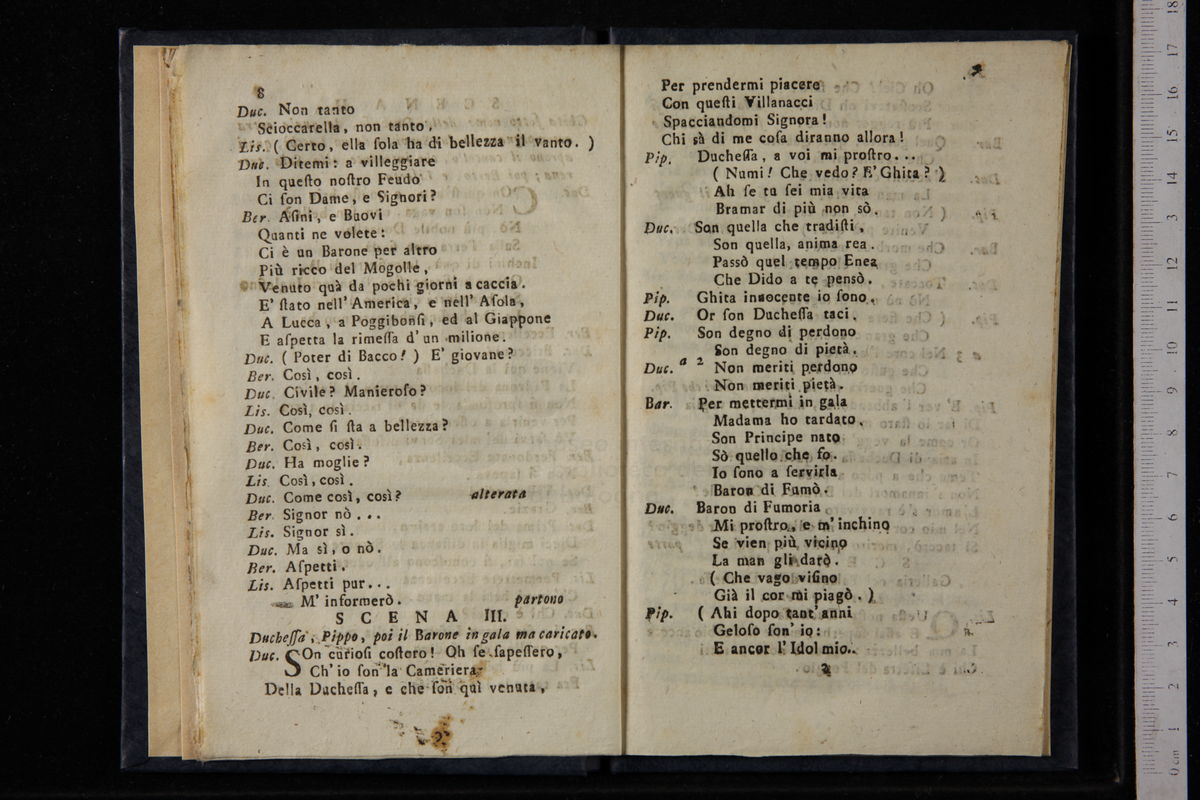 8
Duc. Non tanto
Scioccarella, non tanto.
Lis. ( Certo, ella ſola ha di bellezza il vanto. )
Duc. Ditemi: a villeggiare
In queſto noſtro Feudo
Ci ſon Dame, e Signori?
Ber. Aſini, e Buovi
Quanti ne volete:
Ci è un Barone per altro
Più ricco del Mogolle,
Venuto quà da pochi giorni a caccia.
E' ſtato nell' America, e nell' Aſola,
A Lucca, a Poggibonſi, ed al Giappone
E aſpetta la rimeſſa d' un milione.
Duc. ( Poter di Bacco! ) E' giovane?
Ber. Così, così.
Duc. Civile? Manieroſo?
Lis. Così, così.
Duc. Come ſi ſta a bellezza?
Ber. Così, così.
Duc. Ha moglie?
Lis. Così, così.
Duc. Come così, così? alterata
Ber. Signor nò...
Lis. Signor sì.
Duc. Ma sì, o nò.
Ber. Aſpetti.
Lis. Aſpetti pur...
M' informerò. partono
SCENA III.
Ducheſſa, Pippo, poi il Barone in gala ma caricato.
Duc. SOn curioſi coſtoro! Oh ſe ſapeſſero,
Ch' io ſon la Cameriera
Della Ducheſſa, e che ſon quì venuta,
Per prendermi piacere
Con queſti Villanacci
Spacciandomi Signora!
Chi sà di me coſa diranno allora!
Pip. Ducheſſa, a voi mi proſtro...
( Numi! Che vedo? E' Ghita? )
Ah ſe tu ſei mia vita
Bramar di più non sò.
Duc. Son quella che tradiſti,
Son quella, anima rea.
Paſsò quel tempo Enea
Che Dido a te pensò.
Pip. Ghita innocente io ſono.
Duc. Or ſon Ducheſſa taci.
Pip. Son degno di perdono
Son degno di pietà.
Duc. a 2 Non meriti perdono
Non meriti pietà.
Bar. Per mettermi in gala
Madama ho tardato.
Son Principe nato
Sò quello che fo.
Io ſono a ſervirla
Baron di Fumò.
Duc. Baron di Fumoria
Mi proſtro, e m' inchino
Se vien più vicino
La man gli darò.
( Che vago viſino
Già il cor mi piagò. )
Pip. ( Ahi dopo tant' anni
Geloſo ſon' io:
E ancor l' Idol mio..